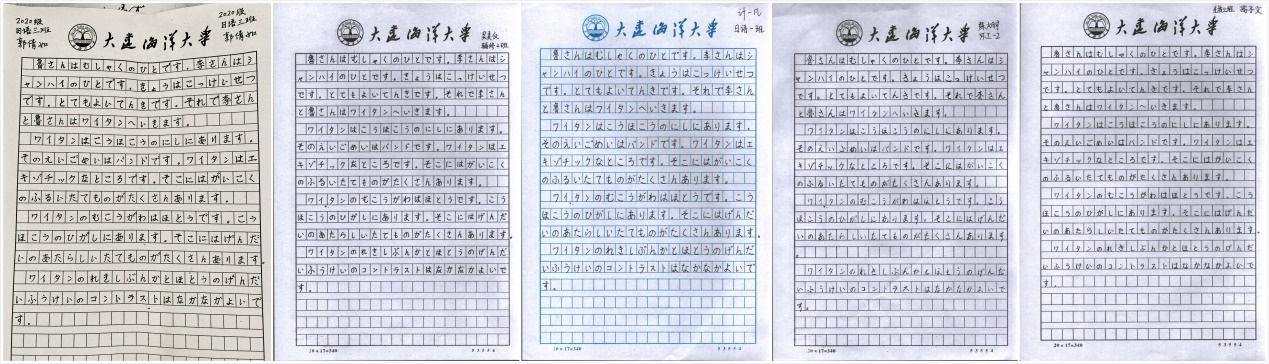 2020级
日语三班
郭倩如
大连海洋大学
魯さんはむしゃくのひとです。李さんはシ
ャンハイのひとです。きょうはこっけいせつ
です。とてもよいてんきです。それで李さん
と魯さんはワイタンへいきます。
ワイタンはこうほこうのにしにあります。
そのえいごめいはバンドです。ワイタンはエ
キゾチックなところです。そこにはがいこく
のふるいたてものがたくさんあります。
ワイタンのむこうがわはほとうです。こう
ほこうのひがしにあります。そこにはげんだ
いのあたらしいたてものがたくさんあります。
ワイタンのれきしぶんかとほとうのげんだ
いふうけいのコントラストはなかなかよいで
す。
大连海洋大学
魯さんはむしゃくのひとです。李さんはシ
ャンハイのひとです。きょうはこっけいせつ
です。とてもよいてんきです。それで李さん
と魯さんはワイタンへいきます。
ワイタンはこうほこうのにしにあります。
そのえいごめいはバンドです。ワイタンはエ
キゾチックなところです。そこにはがいこく
のふるいたてものがたくさんあります。
ワイタンのむこうがわはほとうです。こう
ほこうのひがしにあります。そこにはげんだ
いのあたらしいたてものがたくさんあります。
ワイタンのれきしぶんかとほとうのげんだ
いふうけいのコントラストはなかなかよいで
す。
20×17=340
大连海洋大学
许一凡
日语一班
魯さんはむしゃくのひとです。李さんはシ
ャンハイのひとです。きょうはこっけいせつ
です。とてもよいてんきです。それで李さん
と魯さんはワイタンへいきます。
ワイタンはこうほこうのにしにあります。
そのえいごめいはバンドです。ワイタンはエ
キゾチックなところです。そこにはがいこく
のふるいたてものがたくさんあります。
ワイタンのむこうがわはほとうです。こう
ほこうのひがしにあります。そこにはげんだ
いのあたらしいたてものがたくさんあります。
ワイタンのれきしぶんかとほとうのげんだ
いふうけいのコントラストはなかなかよいで
す。
20×17=340
大连海洋大学
魯さんはむしゃくのひとです。李さんはシ
ャンハイのひとです。きょうはこっけいせつ
です。とてもよいてんきです。それで李さん
と魯さんはワイタンへいきます。
ワイタンはこうほこうのにしにあります。
そのえいごめいはバンドです。ワイタンはエ
キゾチックなところです。そこにはがいこく
のふるいたてものがたくさんあります。
ワイタンのむこうがわはほとうです。こう
ほこうのひがしにあります。そこにはげんだ
いのあたらしいたてものがたくさんあります
ワイタンのれきしぶんかとほとうのげんだ
いふうけいのコントラストはなかなかよいで
す。
20×17=340
大连海洋大学
魯さんはむしゃくのひとです。李さんはシ
ャンハイのひとです。きょうはこっけいせつ
です。とてもよいてんきです。それで李さん
と魯さんはワイタンへいきます。
ワイタンはこうほこうのにしにあります。
そのえいごめいはバンドです。ワイタンはエ
キゾチックなところです。そこにはがいこく
のふるいたてものがたくさんあります。
ワイタンのむこうがわはほとうです。こう
ほこうのひがしにあります。そこにはげんだ
いのあたらしいたてものがたくさんあります。
ワイタンのれきしぶんかとほとうのげんだ
いふうけいのコントラストはなかなかよいで
す。
20×17=340